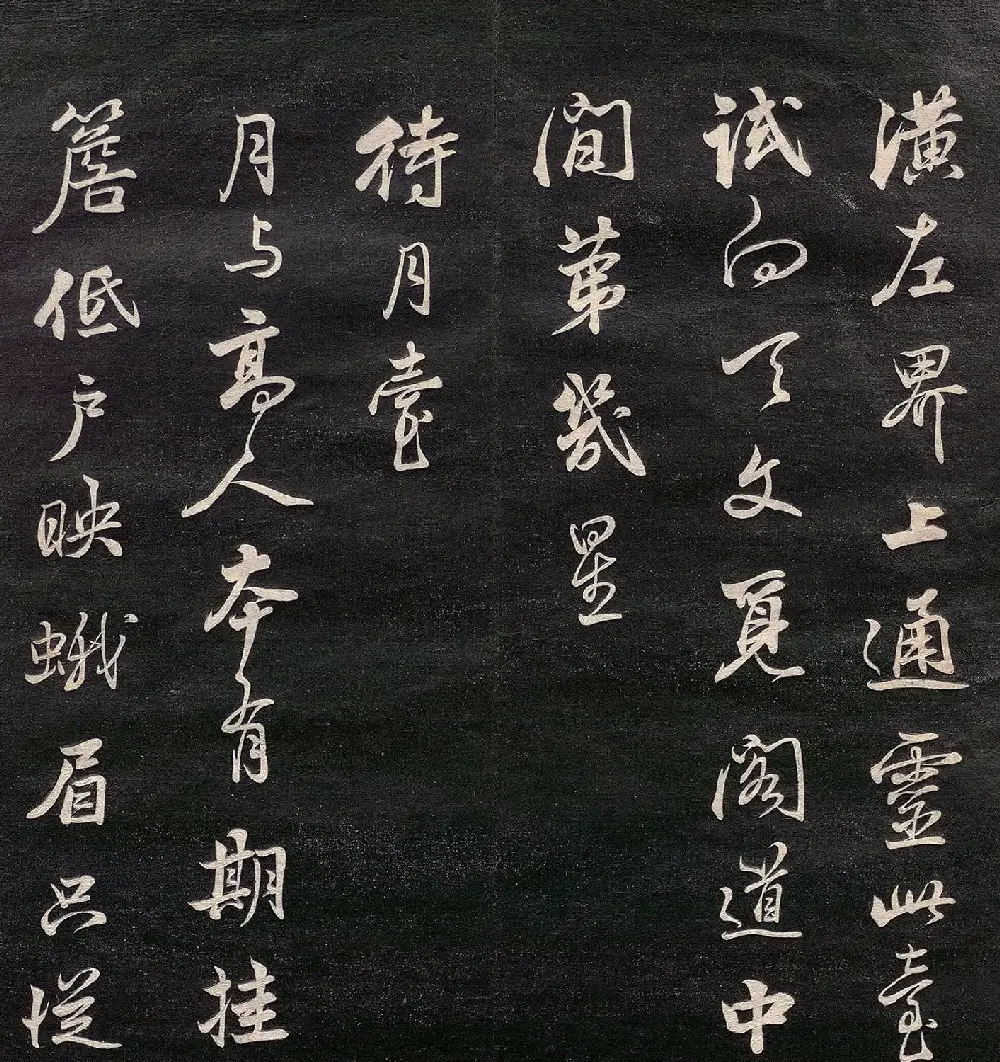 潢左界上通靈此臺
試向天文覓閣道中
間第幾星
待月臺
月與高人本有期挂
簷低戶映蛾眉只從